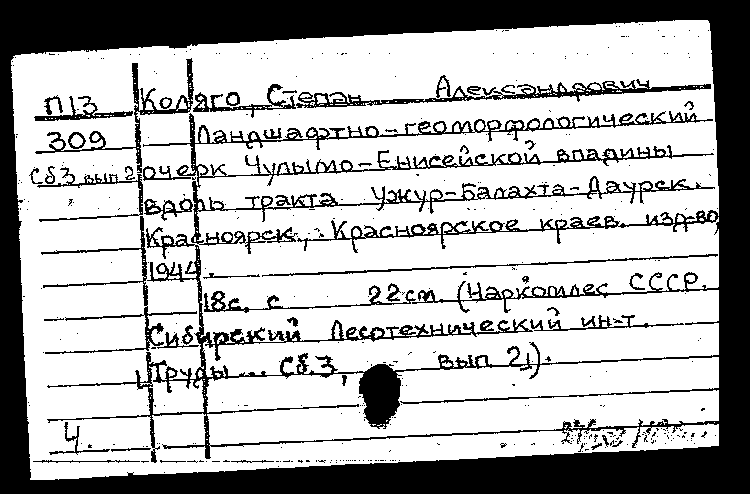 П13 Коляго, Степан Александрович
309 Ландшафтно-геоморфологический
Сб.3, вып 2 очерк Чулымо-Енисейской впадины
вдоль тракта Ужур-Балахта-Даурск.
Красноярск, Красноярское краев. изд-во,
1944.
18с. с 22см. (Наркомлес СССР.
Сибирский Лесотехнический ин-т.
Труды... Сб.3, вып 2).
4.